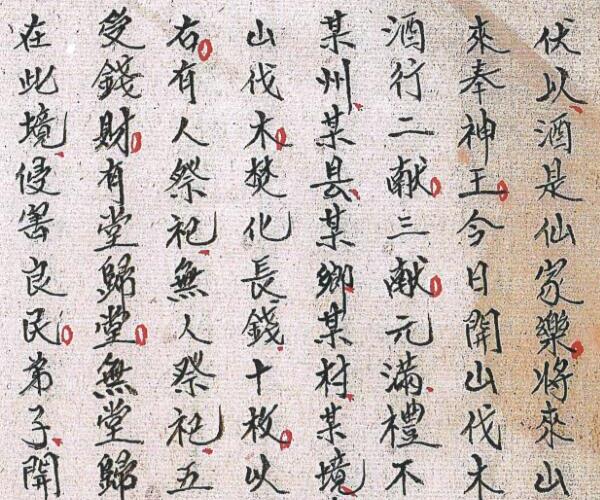 伏以酒是仙家樂將來山
來奉神王今日開山伐木
酒行二献三献元滿禮不
某州某县某鄉某村某境
山伐木焚化長錢十枚以
右有人祭祀無人祭祀五
受錢財有堂歸堂無堂歸
在此境侵害良民弟子開